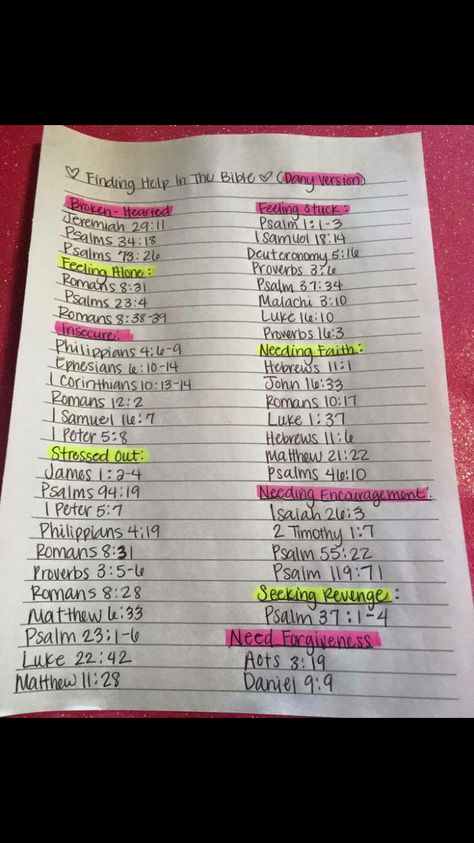 ♡ Finding Help In The Bible ♡ (Dany Version)
Broken-Hearted
Jeremiah 29:11
Psalms 34:18
Psalms 73:26
Feeling Alone:
Romans 8:31
Psalms 23:4
Romans 8:38-39
Insecure:
Philippians 4:6-9
Ephesians 6:10-14
1 Corinthians 10:13-14
Romans 12:2
1 Samuel 16:7
1 Peter 5:8
Stressed Out:
James 1:2-4
Psalms 94:19
1 Peter 5:7
Philippians 4:19
Romans 8:31
Proverbs 3:5-6
Romans 8:28
Matthew 6:33
Psalm 23:1-6
Luke 22:42
Matthew 11:28
Feeling Stuck:
Psalm 1:1-3
1 Samuel 18:14
Deuteronomy 5:16
Proverbs 3:6
Psalm 37:34
Malachi 3:10
Luke 16:10
Proverbs 16:3
Needing Faith:
Hebrews 11:1
John 16:33
Romans 10:17
Luke 1:37
Hebrews 11:6
Matthew 21:22
Psalms 46:10
Needing Encouragement:
Isaiah 26:3
2 Timothy 1:7
Psalm 55:22
Psalm 119:71
Seeking Revenge:
Psalm 37:1-4
Need Forgiveness
Acts 3:19
Daniel 9:9